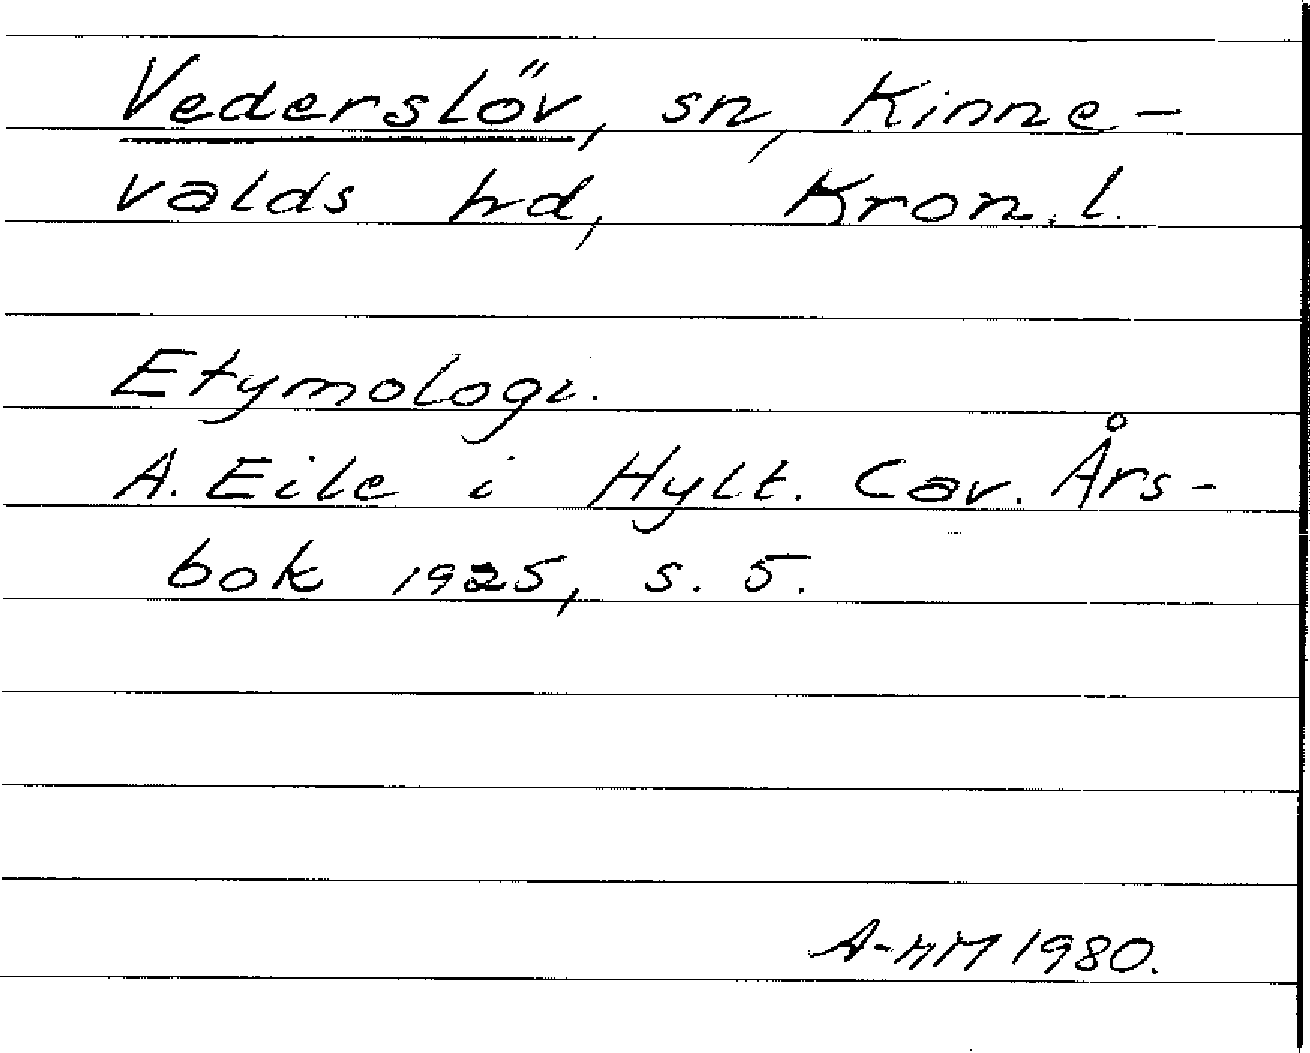 Vederslöv, sn, Kinne-
valds hd, Kron. l.
Etymologi.
A. Eile i Hylt. Cav. Års-
bok 1925, s. 5.
A-HM 1980.